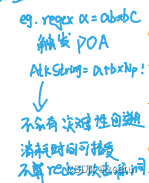 eg. regex α = abab c
触发 POA
AtkString = a+b×Np!
不会有灾难性回溯
消耗时间可接受
不算 redos